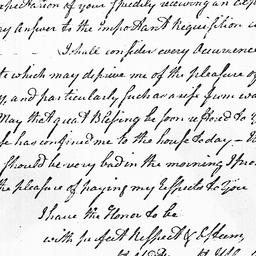 expectation of your speedily receiving an
ry answer to the important Requisition
I shall consider every Occurrence
te which may deprive me of the pleasure of
y, and particularly such as is from wa
May that great Blessing be soon restored to y
se has confined me to the house today —
should be very bad in the morning I pro
the pleasure of paying my respects to You
I have the Honor to be
with perfect Respect & Esteem,